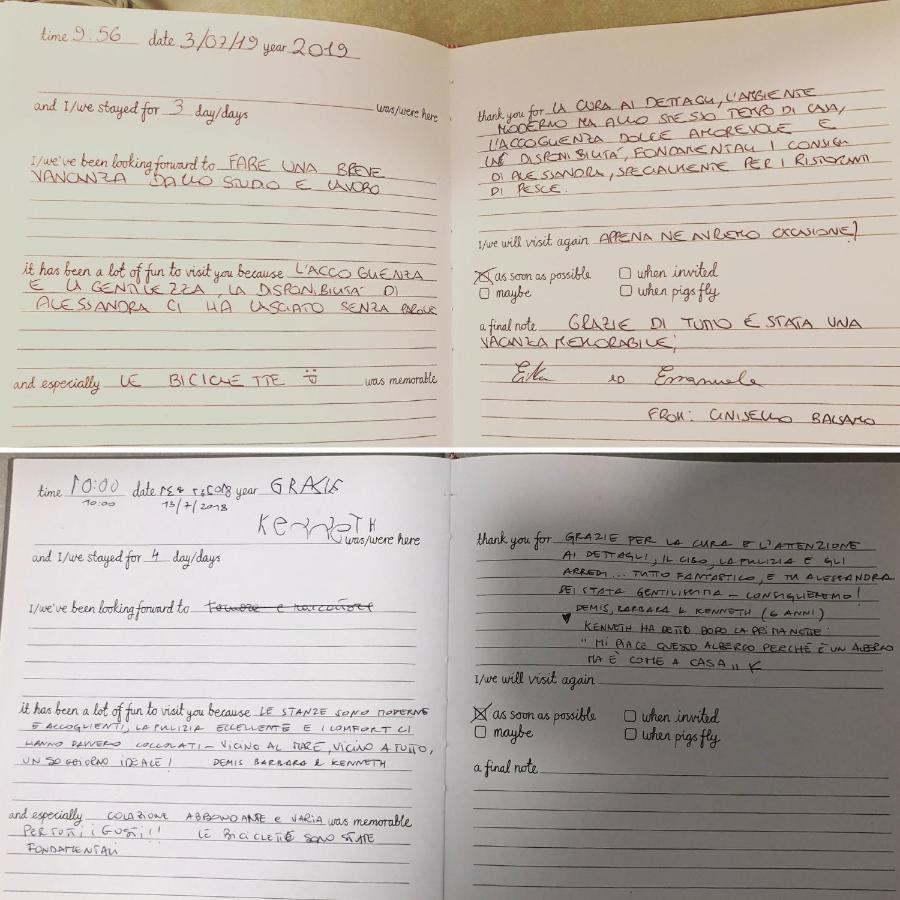 time 9:56 date 3/07/19 year 2019
was/were here
and I/we stayed for 3 day/days
I/we've been looking forward to FARE UNA BREVE
VANCANZA DALLO STUDIO E LAVORO
it has been a lot of fun to visit you because L'ACCOGLIENZA
E LA GENTILEZZA, LA DISPONIBILITA' DI
ALESSANDRA CI HA LASCIATO SENZA PAROLE
and especially LE BICICLETTE was memorable
thank you for LA CURA AI DETTAGLI, L'AMBIENTE
MODERNO MA ALLO STESSO TEMPO DI CASA,
L'ACCOGLIENZA DOLCE AMOREVOLE E
LA DISPONIBILITA', FONDAMENTALI I CONSIGLI
DI ALESSANDRA, SPECIALMENTE PER I RISTORANTI
DI PESCE.
I/we will visit again APPENA NE AVREMO OCCASIONE!
as soon as possible when invited
maybe when pigs fly
a final note GRAZIE DI TUTTO È STATA UNA
VACANZA MEMORABILE;
ED Emanuele
FROM: CINISELLO BALSAMO
time 10:00 date year GRAZIE
10:00 13/7/2018
KENNETH
was/were here
and I/we stayed for 4 day/days
I/we've been looking forward to
it has been a lot of fun to visit you because LE STANZE SONO MODERNE
E ACCOGLIENTI, LA PULIZIA ECCELLENTE E I COMFORT CI
HANNO DAVVERO COCCOLATI - VICINO AL MARE, VICINO A TUTTO,
UN SOGGIORNO IDEALE! DEMIS BARBARA & KENNETH
and especially COLAZIONE ABBONDANTE E VARIA was memorable
PER TUTTI I GUSTI!! LE BICICLETTE SONO STATE
FONDAMENTALI
thank you for GRAZIE PER LA CURA E L'ATTENZIONE
AI DETTAGLI, IL CIBO, LA PULIZIA E GLI
ARREDI... TUTTO FANTASTICO, E TU ALESSANDRA
SEI STATA GENTILISSIMA - CONSIGLIEREMO!
DEMIS, BARBARA & KENNETH (6 ANNI)
♥ KENNETH HA DETTO DOPO LA PRIMA NOTTE:
"MI PIACE QUESTO ALBERGO PERCHÈ È UN ALBERGO
MA È COME A CASA" K
I/we will visit again
as soon as possible when invited
maybe when pigs fly
a final note